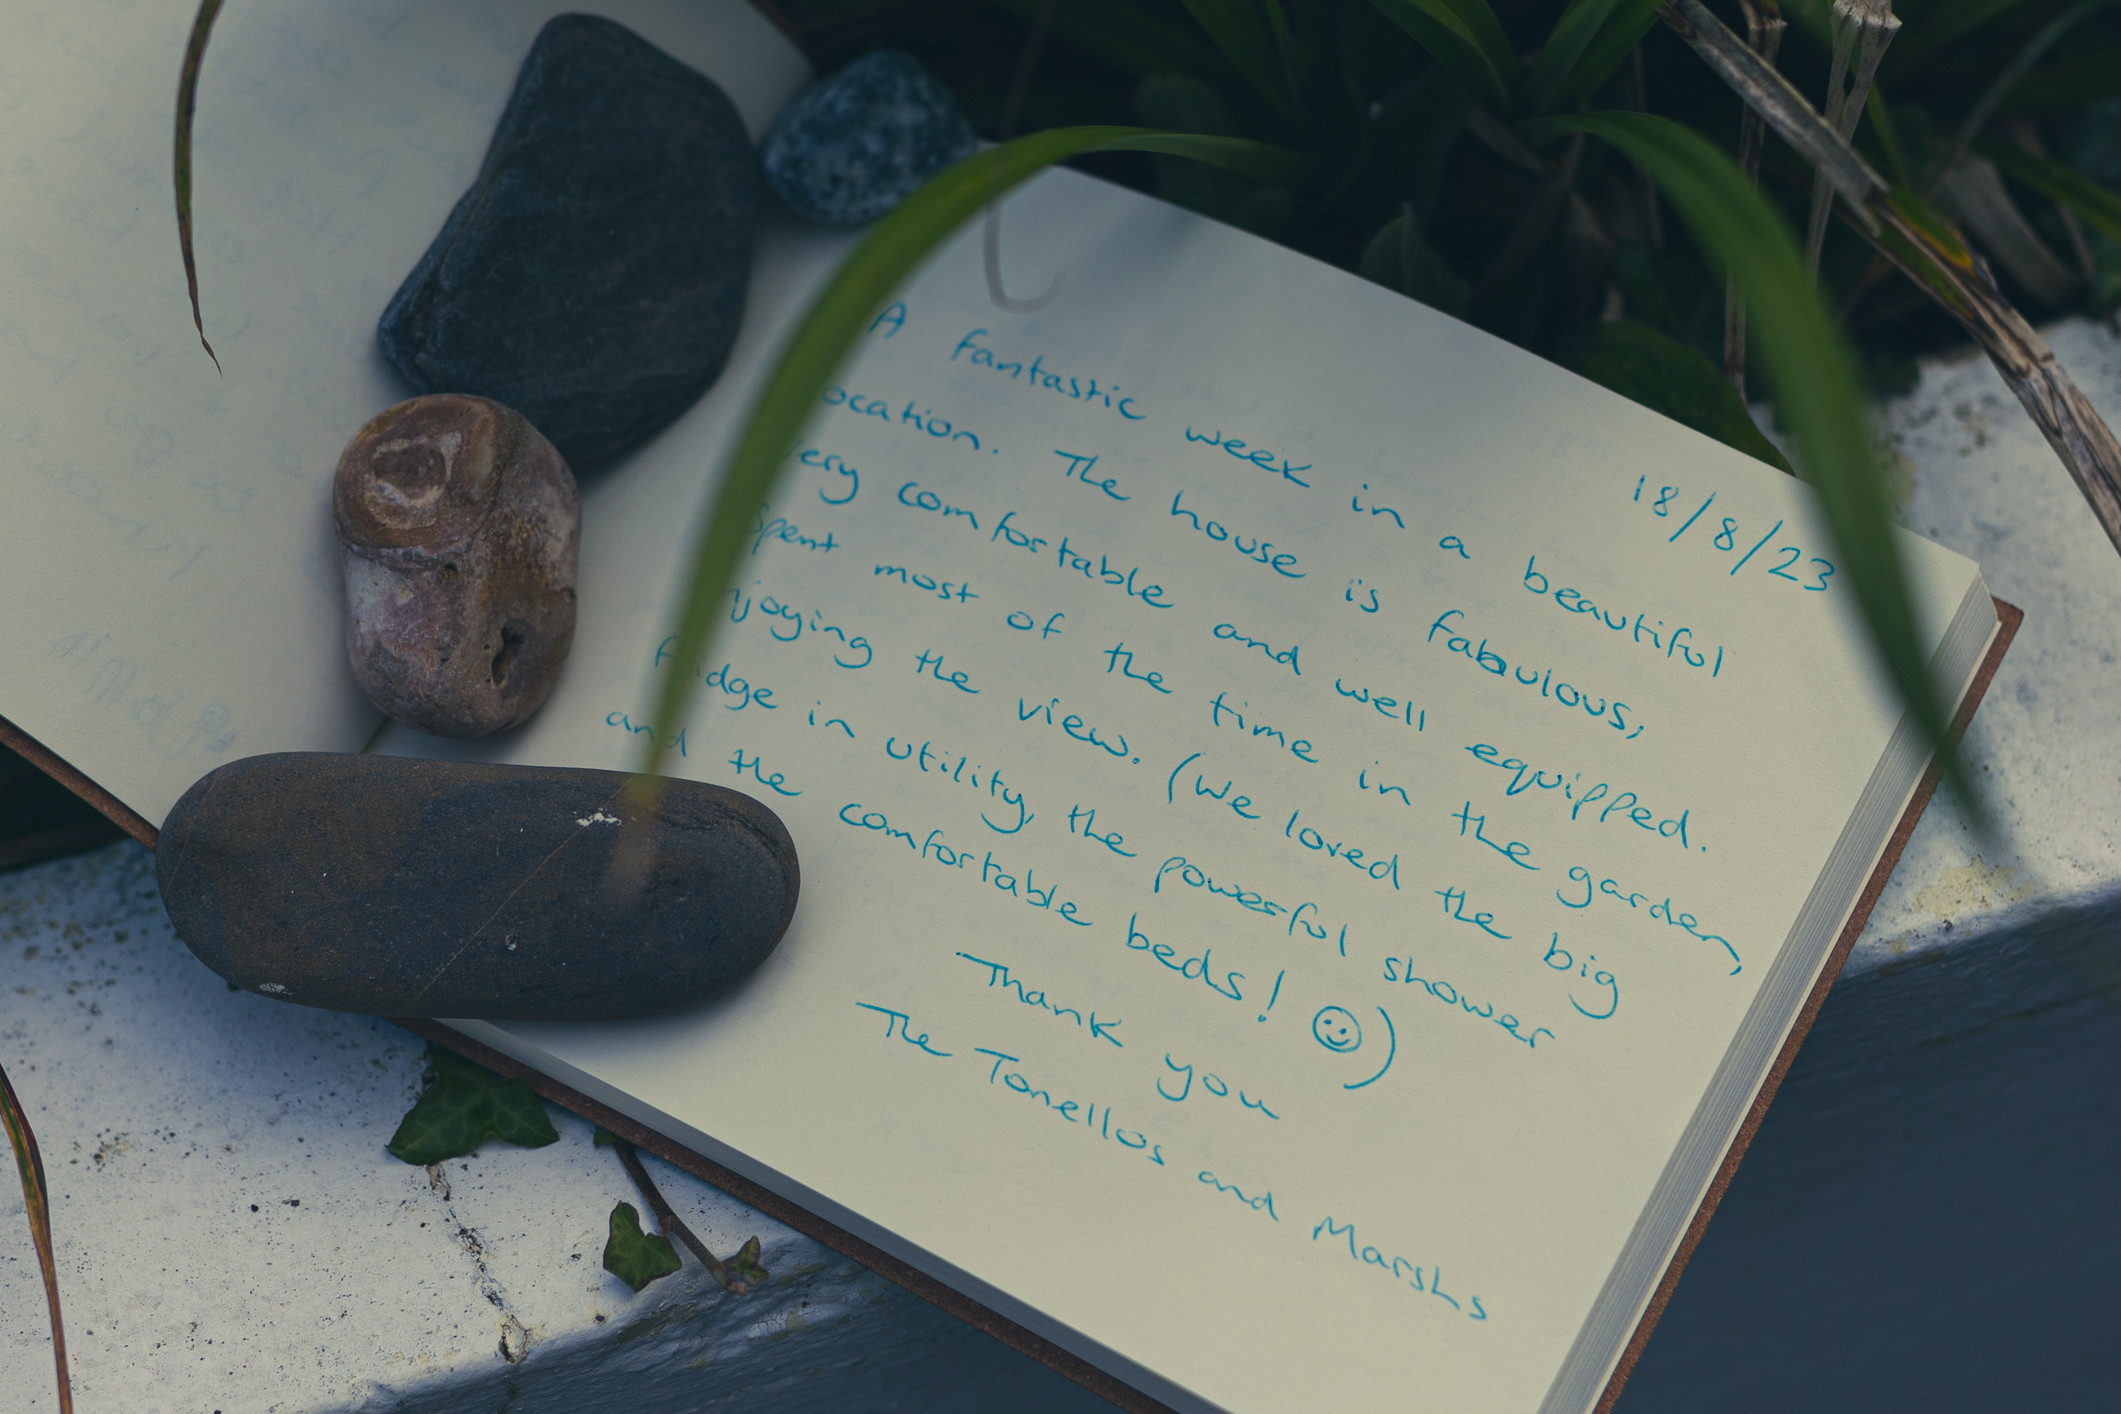 18/8/23
A fantastic week in a beautiful
location. The house is fabulous;
very comfortable and well equipped.
Spent most of the time in the garden,
enjoying the view. (We loved the big
fridge in utility, the powerful shower
and the comfortable beds! ☺)
Thank you
The Tonellos and Marshs